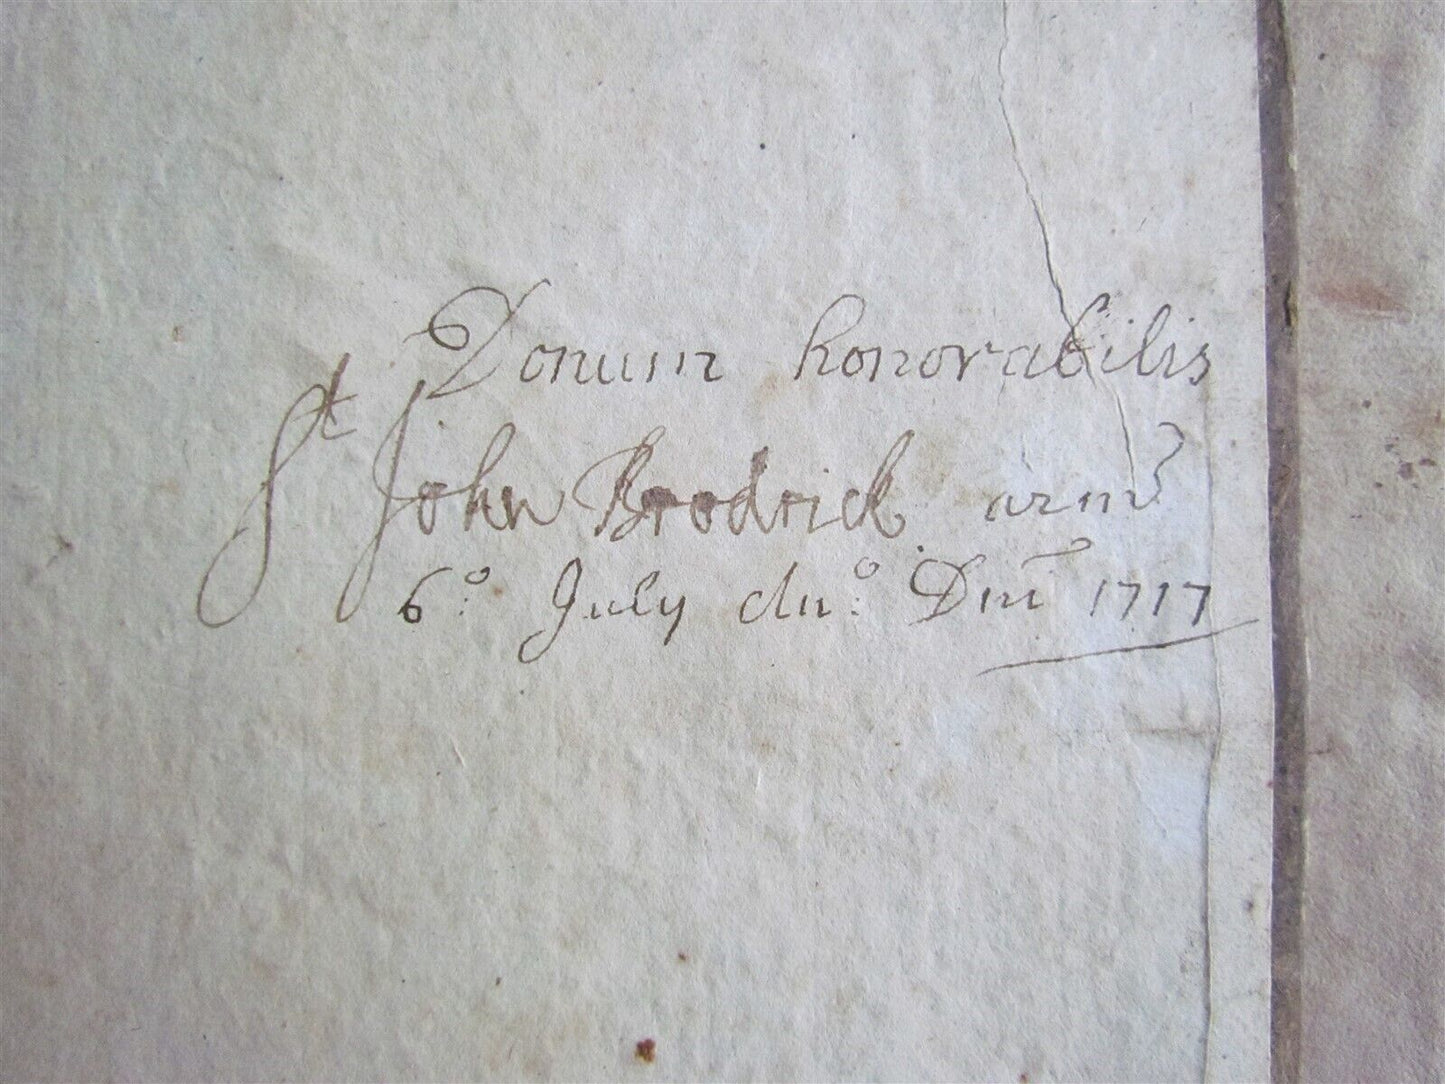 Donum honorabilis
St John Brodrick arm
6o July Ano Dni 1717